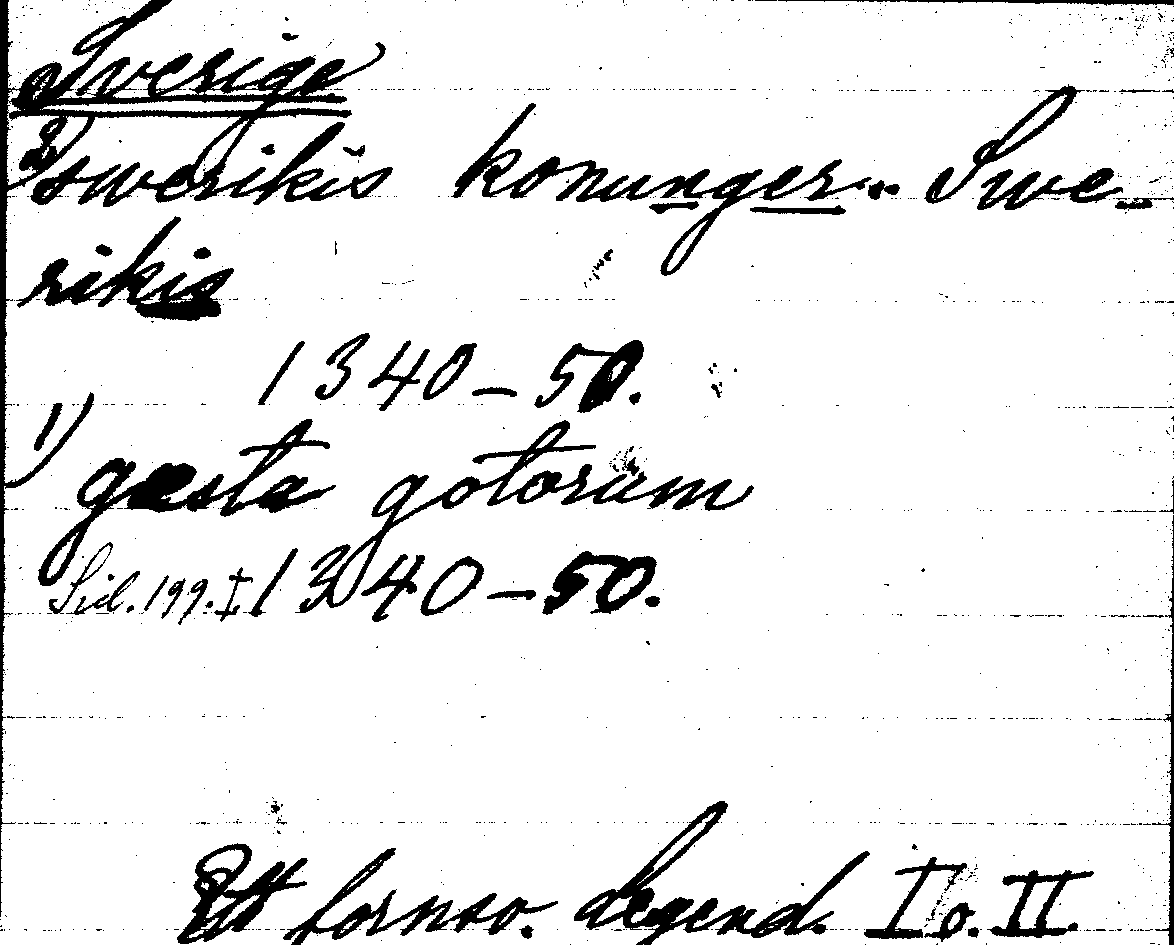 Sverige
2) swerikis konunger.. Swe-
rikis
1340-50.
1) gesta gotorum
Sid. 199. I. 1340-50.
Ett fornsv. Legend. I o. II.